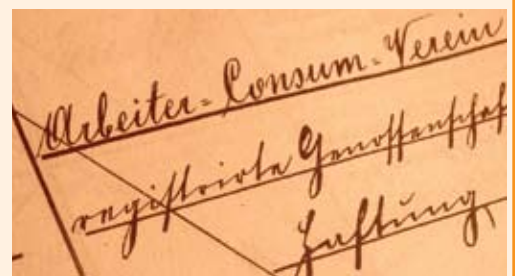 Arbeiter-Consum-Verein
registrirte Genossenschaf
Haftung